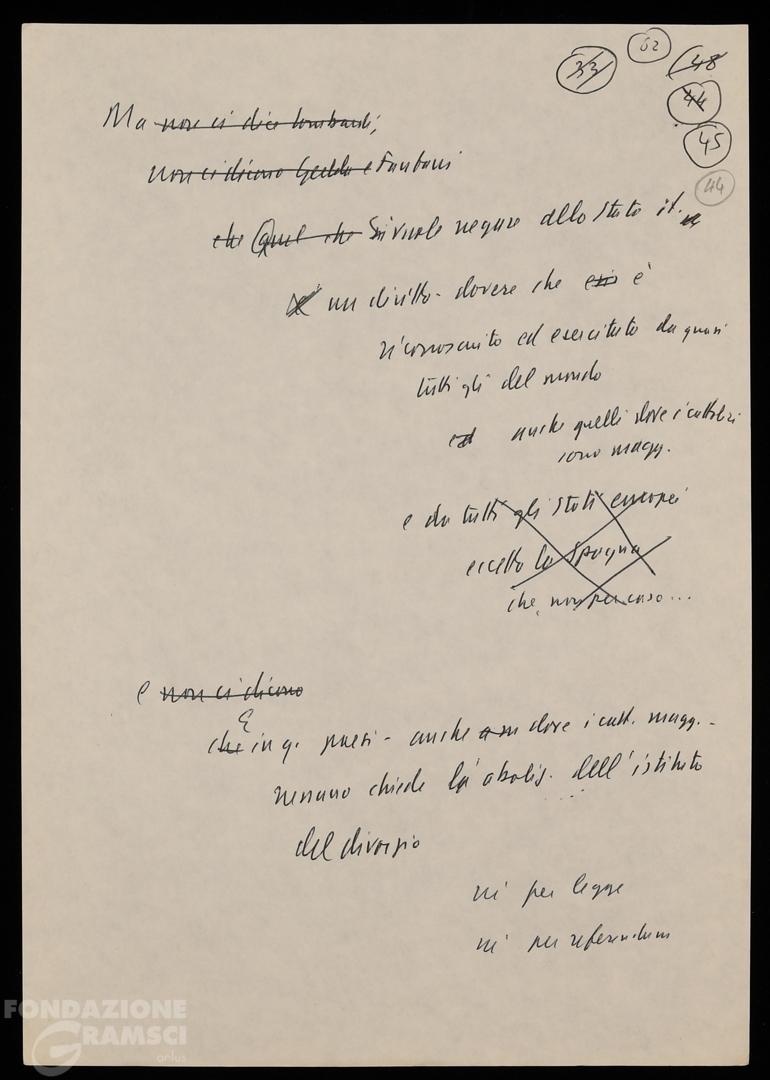 52
33
48
44
45
44
Ma non ci dice Lombardi,
non ci dicono Gedda e Fanfani
che Quel che Si vuole negare allo Stato it.
è un diritto-dovere che è
riconosciuto ed esercitato da quasi
tutti gli del mondo
ed anche quelli dove i cattolici
sono magg.
e da tutti gli Stati europei
eccetto la Spagna
che, non per caso...
e non ci dicono
E
che in q. paesi - anche dove i catt. magg. -
nessuno chiede la abolis. dell'istituto
del divorzio
né per legge
né per referendum
FONDAZIONE
GRAMSCI
onlus